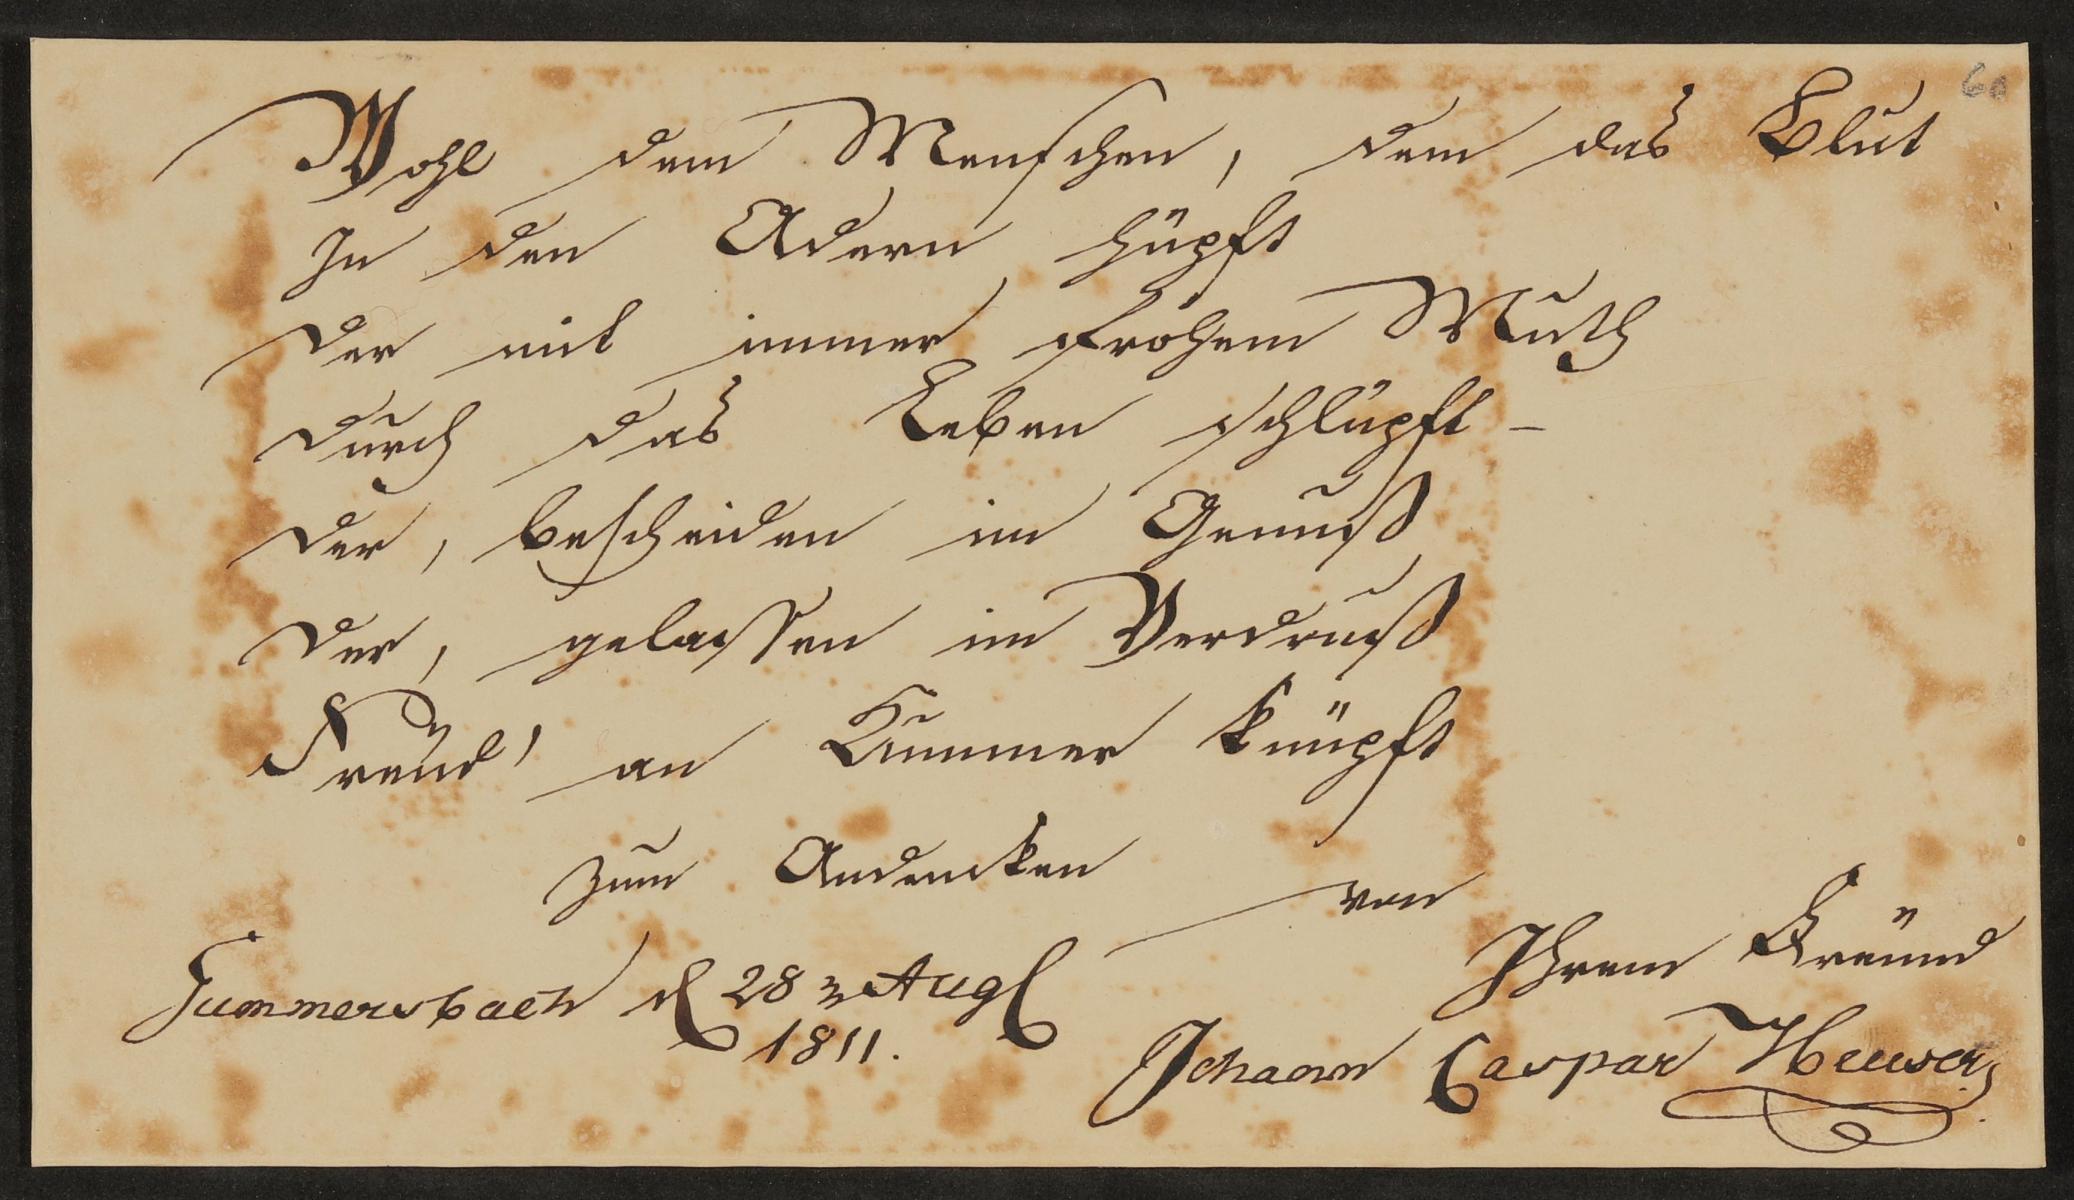 60
Wohl dem Menschen, dem das Blut
In den Adern hüpft
der mit immer frohem Muth
durch das Leben schlüpft –
der, bescheiden im Genuß
der, gelassen im Verdruß
Freud' an Kummer knüpft
zum Andencken
von
Ihrem Freünd
Gummersbach d 28 Aug
1811.
Johann Caspar Heuser